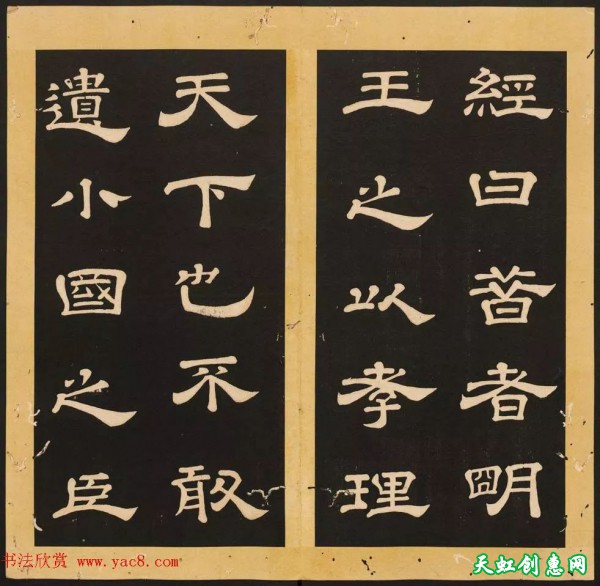 經曰昔者明
王之以孝理
天下也不敢
遺小國之臣
书法欣赏 www.yac8.com
天虹创惠网